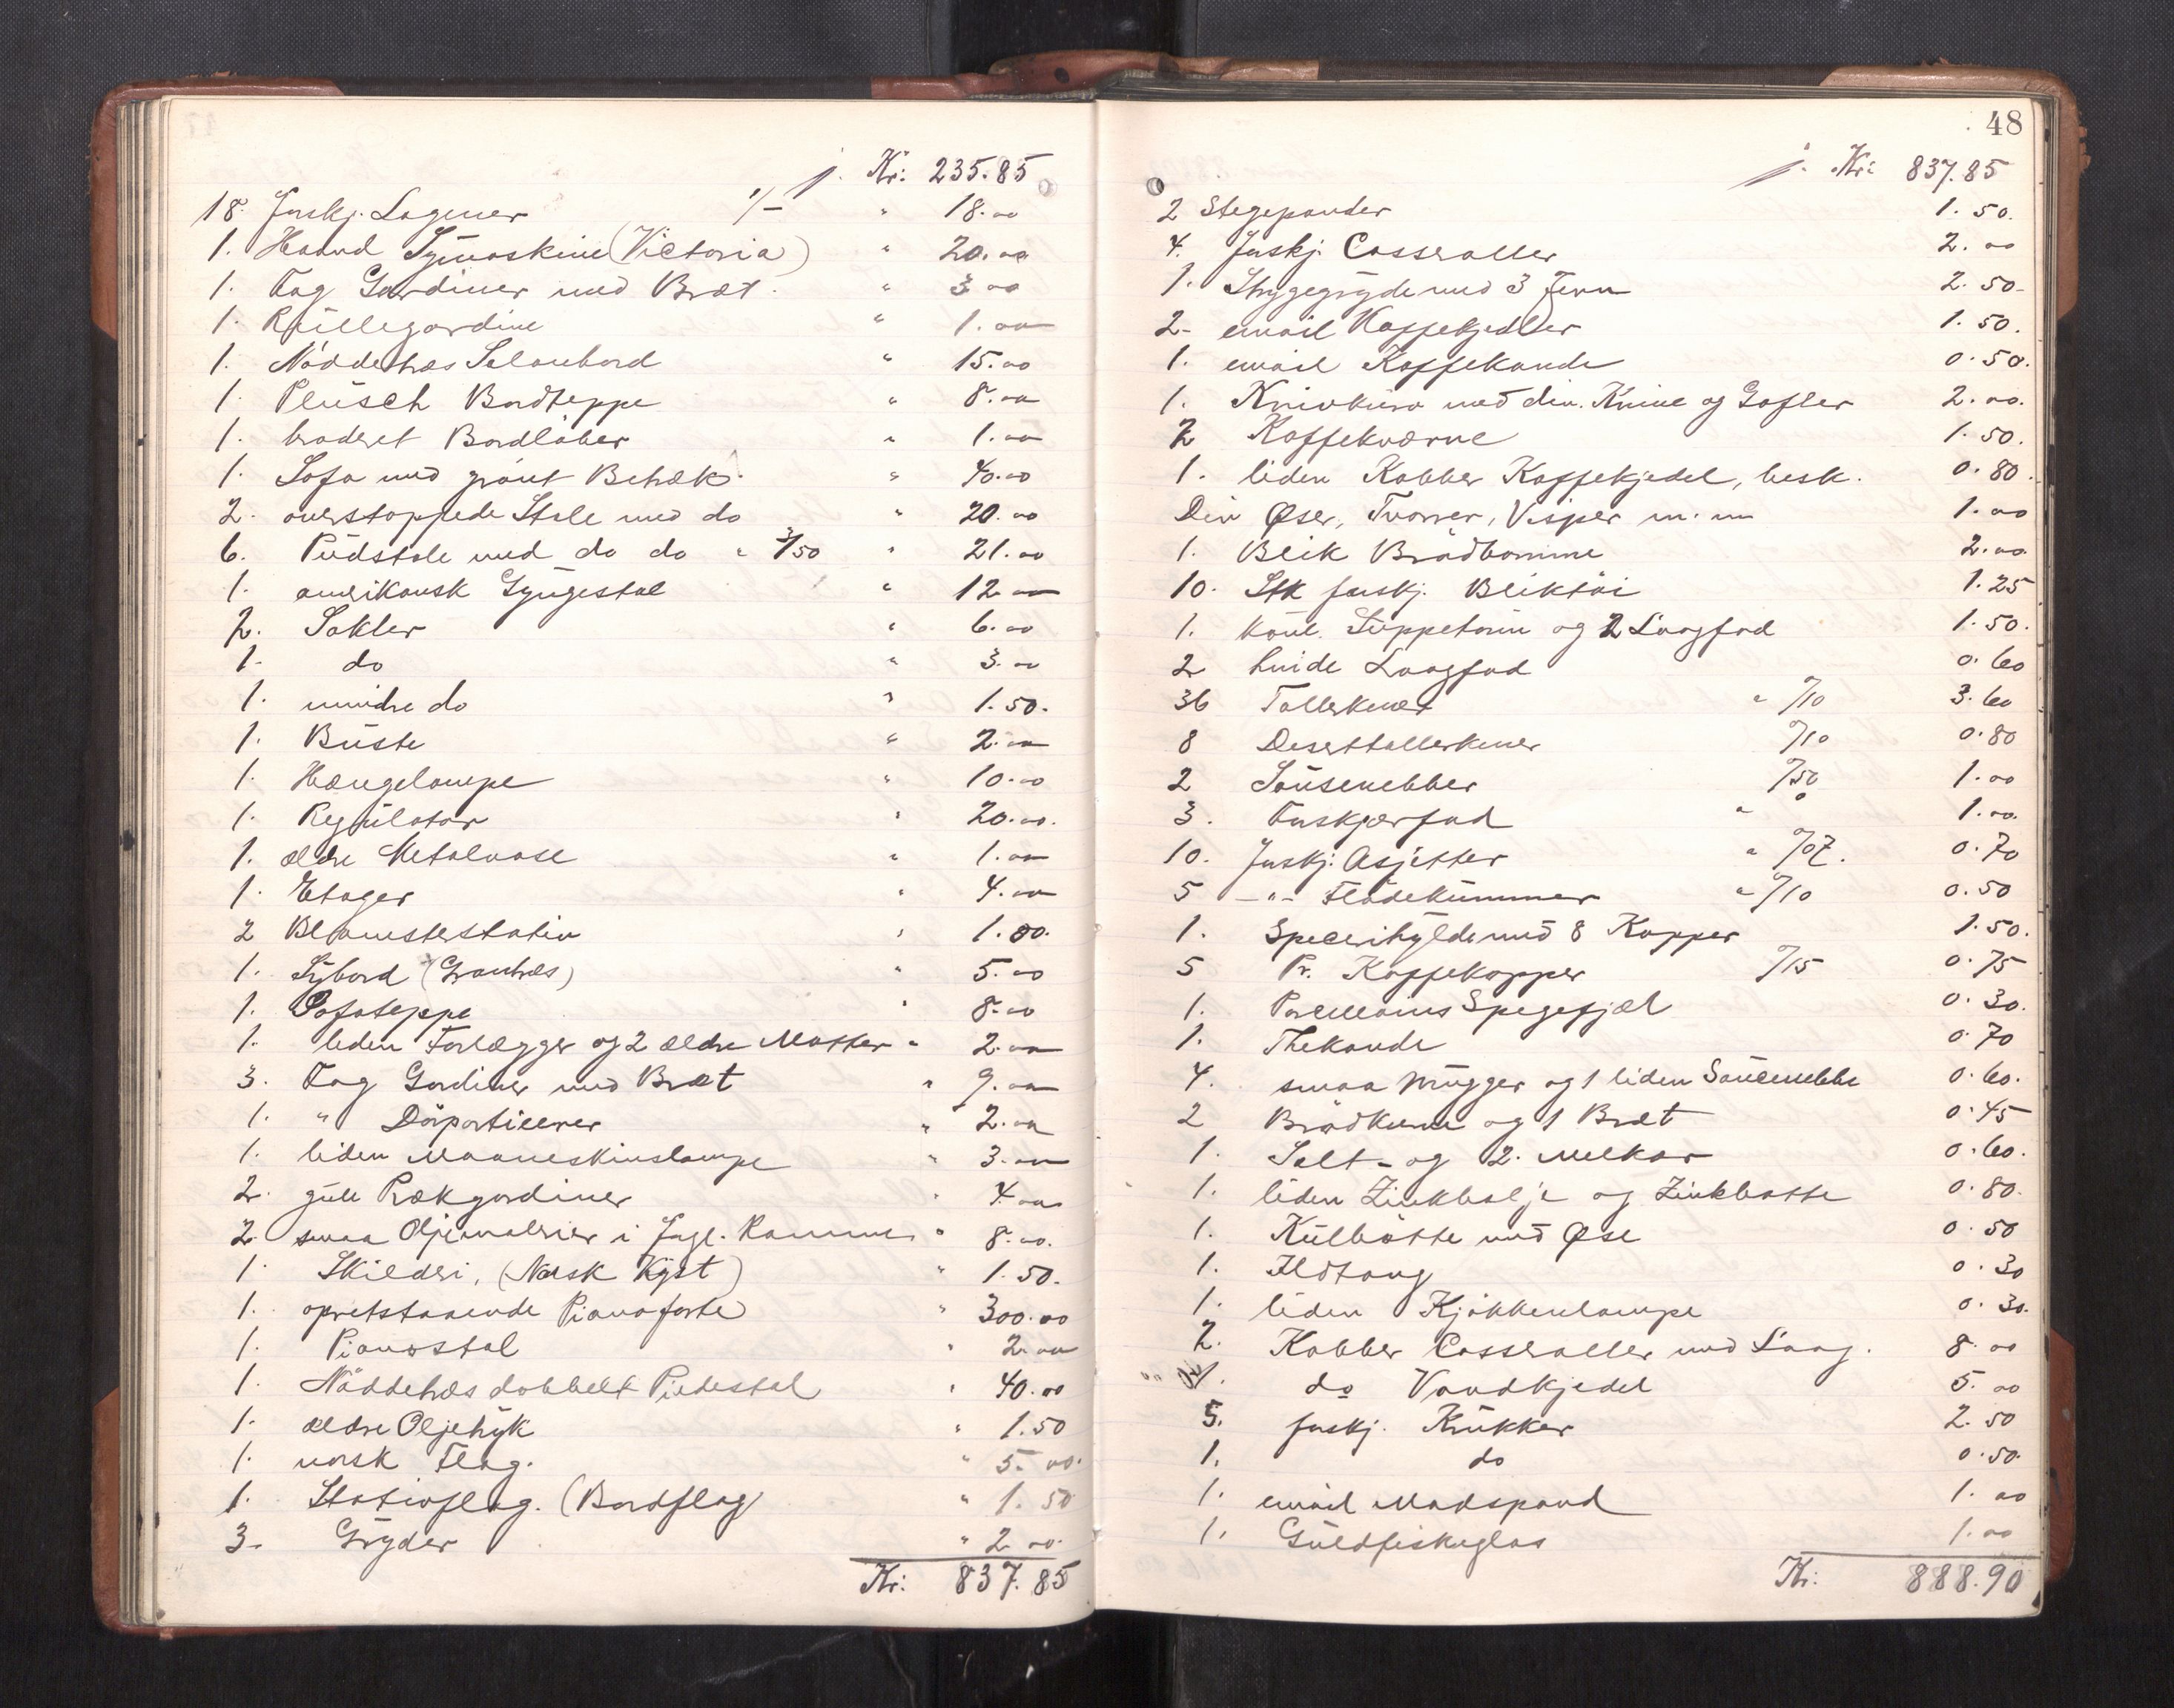 Kr: 235.85
18. forskj. Lagener 1/- " 18.00
1. Haand Symaskine (Victoria) " 20.00
1. Fag Gardiner med Bræt. " 3.00
1. Rullegardine " 1.00
1. Nöddetræs Salonbord " 15.00
1. Plüsch Bordteppe " 8.00
1. broderet Bordlöber " 1.00
1. Sofa med grönt Betræk. " 40.00
2. overstoppede Stole med do " 20.00
6. Pudstole med do do " 3/50 " 21.00
1. amerikansk Gyngestol " 12.00
2. Sokler " 6.00
1. do " 3.00
1. mindre do " 1.50.
1. Büste " 2.00
1. Hængelampe " 10.00
1. Regulator " 20.00.
1. ældre Metalvase " 1.00
1. Etager " 4.00
2 Blomsterstativ " 1.00.
1. Sybord (Grantræs) " 5.00
1. Sofateppe " 8.00
1. liden Forlægger og 2 ældre Matter " 2.00
3. Fag Gardiner med Bræt " 9.00
1. " Dörportierer " 2.00
1. liden Maaneskinslampe " 3.00
2. gule Trækgardiner " 4.00
2. smaa Oljemalerier i forgl. Ramme " 8.00.
1. Skilderi, (Norsk Kyst) " 1.50.
1. opretstaaende Pianoforte " 300.00
1. Pianostol " 2.00
1. Nöddetræs dobbelt Piedestal " 40.00
1. ældre Oljetryk " 1.50
1. norsk Flag. " 5.00.
1. Stativflag. (Bordflag) " 1.50
3. Gryder " 2.00.
Kr: 837.85
48
Kr: 837.85
2 Stegepander 1.50.
4. forskj. Casseroller 2.00
1. Strygegryde med 3 Jern 2.50
2. email Kaffekjedler 1.50.
1. email Kaffekande 0.50.
1. Knivkurv med div. Knive og Gafler 2.00.
2 Kaffekværne 1.50.
1. liden Kobber Kaffekjedel, besk. 0.80.
Div Øser, Tvorer, Visper m.m 1.00
1. Blik Brödbomme 2.00.
10. Stk forskj. Bliktöi 1.25
1. koul. Suppeterin og 2 Laagfad 1.50.
2 hvide Laagfad 0.60
36 Tallerkener " 0/10 3.60
8 Deserttallerkener 0/10 0.80
2 Sausenebber 0/50 1.00
3. Finskjærfad " 1.00.
10. forskj. Asjetter " 0/07. 0.70
5 -"- Flödekummer " 0/10 0.50
1. Specerihylde med 8 Kopper 1.50.
5 Pr. Kaffekopper 0/15 0.75
1. Porcellæins Spegefjæl 0.30.
1. Thekande 0.70
4. smaa Mugger og 1 liden Sausenebbe 0.60.
2 Brödkurve og 1 Bræt 0.45
1. Salt- og 2. Melkar 0.60.
1. liden Zinkbalje og Zinkbøtte 0.80.
1. Kulbøtte med Øse 0.50
1. Ildtang 0.30
1. liden Kjøkkenlampe 0.30.
2. Kobber Casseroller med Laag. 8.00
1. do Vandkjedel 5.00
5. forskj. Krukker 2.50
1. do 0.50.
1. email Madspand 1.00
1. Guldfiskeglas 1.00
Kr: 888.90